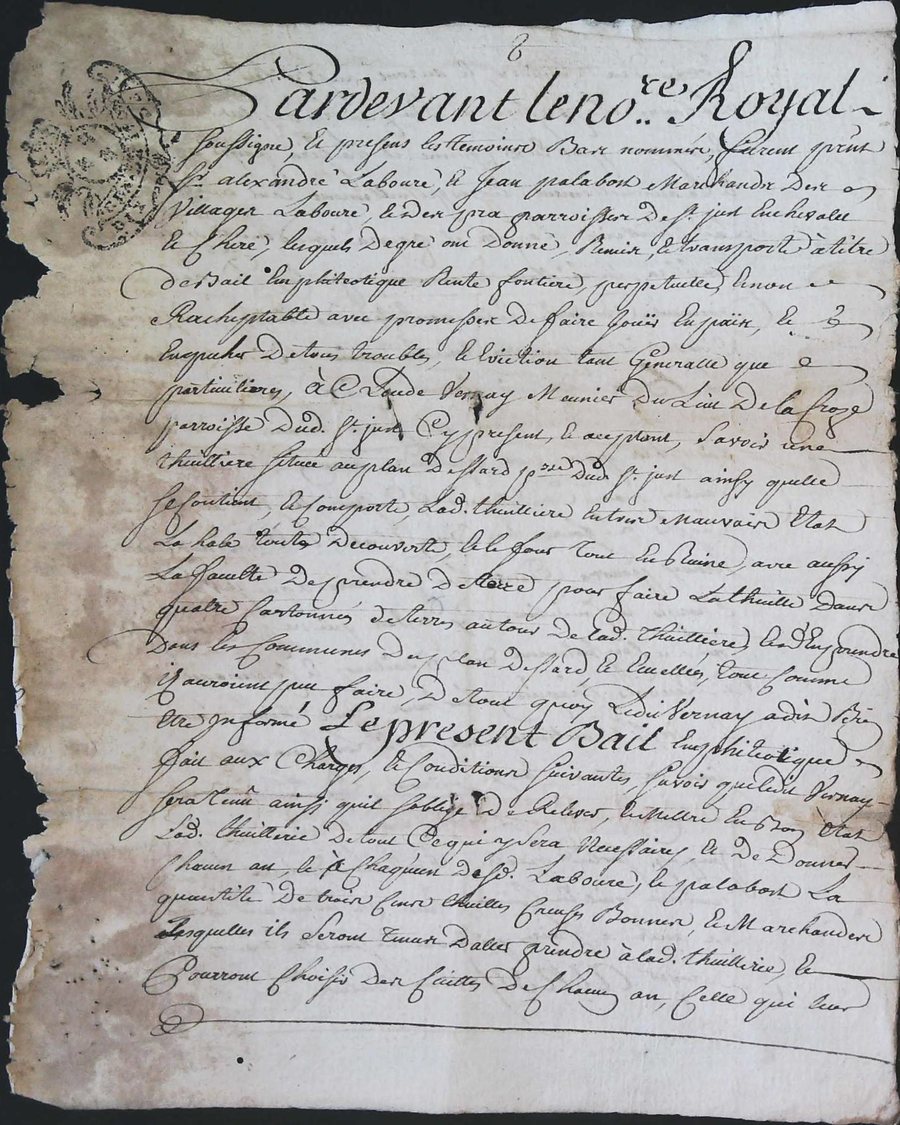 Pardevant le no.re Royal
soussigné, et presens les temoins Bas nommés, furent pr̃nt
Sr. alexandre Labouré, et Jean palabost Marchands des
Villages Labouré, et des pra parroisses de St. just Enchevalet
et Cheré, lesquels de gré ont Donné, Remis, et transporté à titre
de Bail Emphiteotique Rente fontiere, perpetuelle, et non
Racheptable avec promesse de faire Joüir En paix, et
Empecher de tous troubles, et Eviction tant Generalle que
particulieres, à Claude Vernay Meunier du Lieu de la Croze
parroisse dud. St. just Cy present, et aceptant, savoir une
thuilliere située au plan dessard p.sse dud. St. just ainsy quelle
se Contient, et Comporte, Lad. thuilliere en tres Mauvais Etat
La hale toute decouverte, et le four tout en Ruine, avec aussy
La faculté de prendre de terre pour faire La thuille dans
quatre Cartonnés de terres autour de lad. thuilliere, et d'En prendre
dans les Communes du plan dessard, et tout Comme
ils auroient pu faire, de tout quoy Ledit Vernay a dit Bien
etre informé Le present Bail Emphiteotique
fait aux Charges, et Conditions suivantes, savoir que ledit Vernay
sera tenu ainsi quil soblige de Relever, et Mettre en Bon Etat
Lad. thuillerie de tout Ce qui y sera Necessaire, et de Donner
Chacun an, et a Chaqu'un desd. Labouré, et palabost La
quantité de trois Cens thuilles Creuses Bonnes, et Marchandes
Lesquelles ils seront tenus daller prendre à lad. thuillerie, et
Pourront Choisir des Cuittes de Chacun an, Celle qui leur